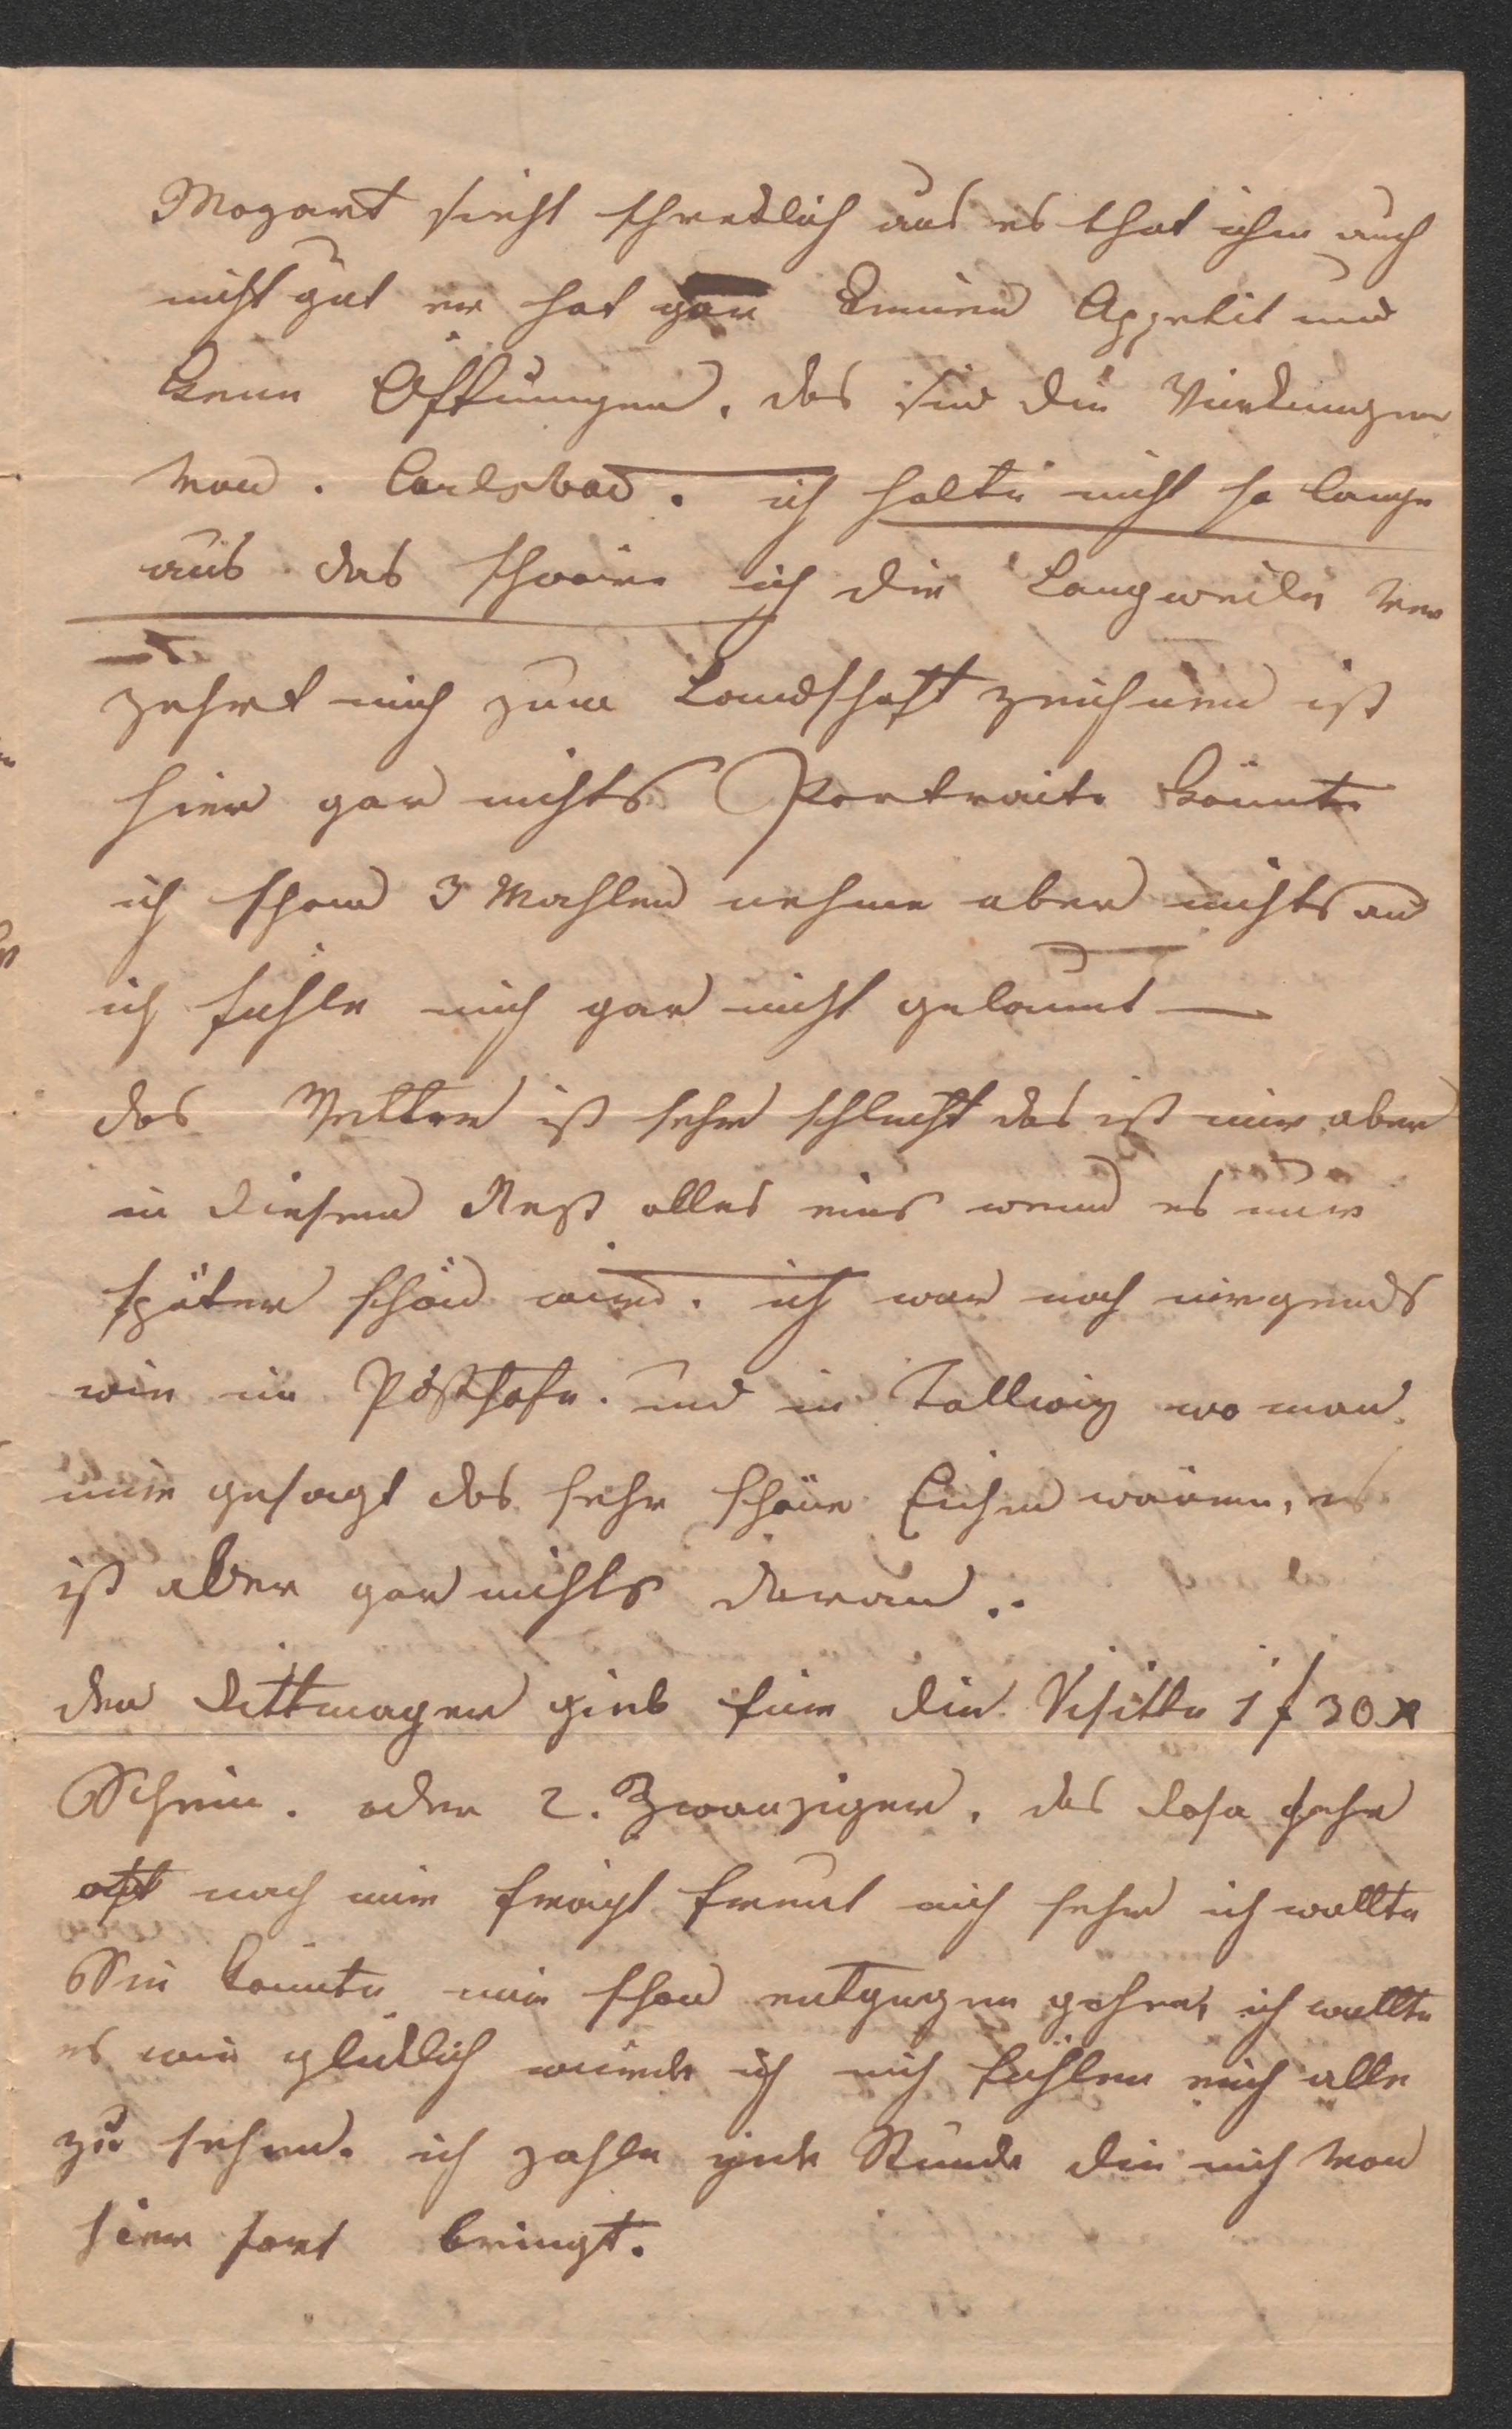 Mozart sieht schreklich aus es that ihm auch
nicht gut er hat gar keinen Appetit und
keine Öffnungen. das sind die Würkungen
von. Carlsbad. ich halte nicht so lange
aus das schwöre ich die Langweile ver
zehrt mich zum Landschaft zeichnen ist
hier gar nichts Portraite könnte
ich schon 3 Mahlen nehme aber nichts an
ich fühle mich gar nicht gelaunt —
das Wetter ist sehr schlecht das ist mir aber
in diesem Nest alles eins wenn es nur
später schön wird. ich war noch nirgends
wie im Posthofe. und in Tallwig wo man
mir gesagt das sehr schöne Eichen wären, es
ist aber gar nichts daran..
den Dittmayer gieb für die Visitte 1 f 30 x
Schein. oder 2. Zwanziger. das Rosa sehr
oft nach mir frägt freut mich sehr ich wollte
Sie könnte mir schon entgegen gehen, ich wollte
es wie glüklich würde ich mich fühlen euch alle
zu sehen. ich zahle jede Stunde die mich von
hier fort bringt.